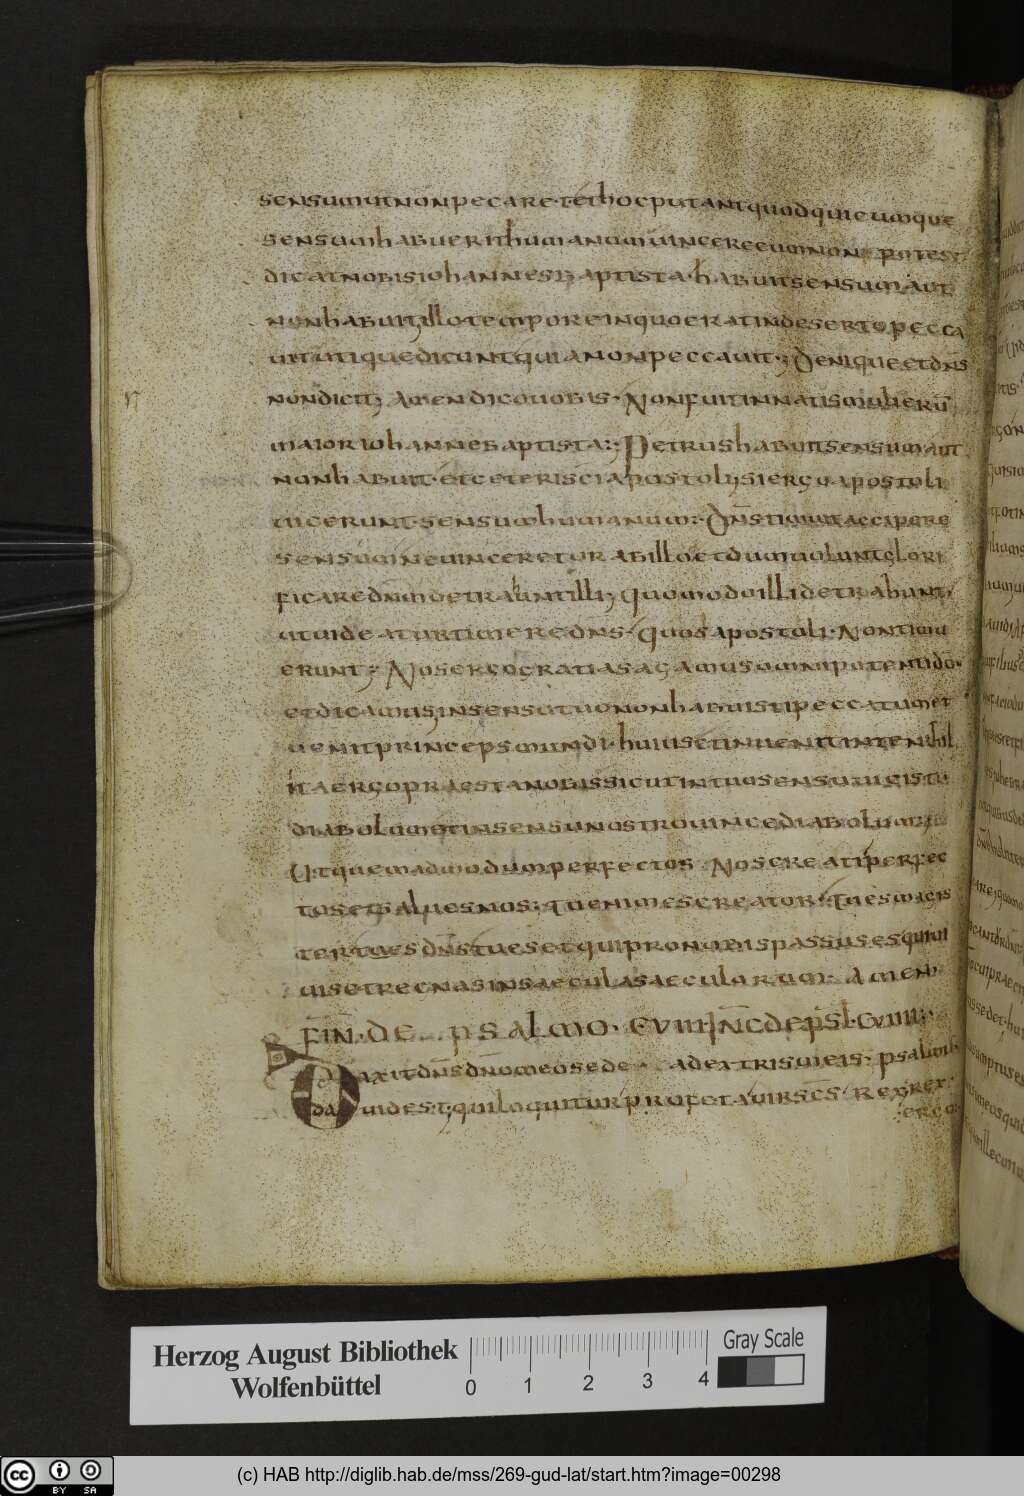 sensum ut non pecare · et hoc putant quod quicumque
sensum habuerit humanum vincere eum non potest
dicat nobis iohannes baptista · habuit sensum aut
non habuit illo tempore in quo erat in deserto pecca
vit utique dicunt quia non peccavit; Denique et dns
non dicit; Amen dico vobis · Non fuit in natis mulierū
maior iohanne baptista: Petrus habuit sensum aut
non habuit · et ceteri sci apostoli; si ergo apostoli
vicerunt sensum humanum: Dns timuit accipere
sensum ne vinceretur ab illo et dum volunt glori
ficare dnm detrahunt illi; Quomodo illi detrahunt
ut videatur timere dns · quos apostoli · Non timu
erunt; Nos ergo gratias agamus omnipotenti do ·
et dicamus; in sensu tuo non habuisti peccatum et
venit princeps mundi · huius et invenit in te nihil
ita ergo praesta nobis sicut in tuo sensu vicisti
diabolum et in sensu nostro vince diabolum
Ut quemadmodum perfectos · Nos creati perfec
tos et salves nos; tu enim es creator · tu es magis
ter tu es dns tu es et qui pro nobis passus es qui vi
vis et regnas in saecula saeculorum: Amen ·
FIN · DE PSALMO · CVIII INC DE PSL · CVIIII
Dixit dns dno meo sede a dextris meis · psalmi
da vid est; qui loquitur profeta vir scs · Rex; rex
ergo
Herzog August Bibliothek
Wolfenbüttel
0 1 2 3 4
Gray Scale
cc BY SA
(c) HAB http://diglib.hab.de/mss/269-gud-lat/start.htm?image=00298